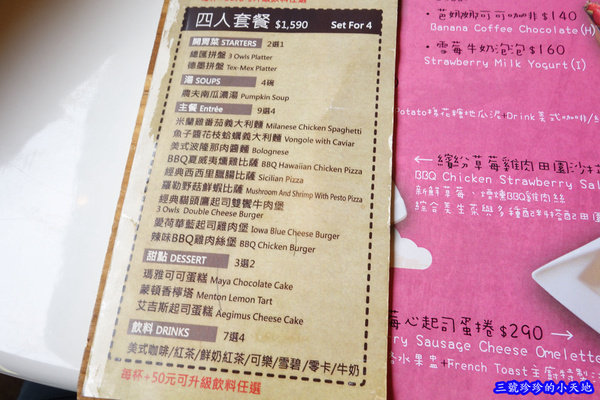 四人套餐 $1,590 Set For 4
開胃菜 STARTERS 2選1
總匯拼盤 3 Owls Platter
德墨拼盤 Tex-Mex Platter
湯 SOUPS 4碗
農夫南瓜濃湯 Pumpkin Soup
主餐 Entrée 9選4
米蘭雞番茄義大利麵 Milanese Chicken Spaghetti
魚子醬花枝蛤蠣義大利麵 Vongole with Caviar
美式波隆那肉醬麵 Bolognese
BBQ夏威夷燻雞比薩 BBQ Hawaiian Chicken Pizza
經典西西里臘腸比薩 Sicilian Pizza
羅勒野菇鮮蝦比薩 Mushroom And Shrimp With Pesto Pizza
經典貓頭鷹起司雙饗牛肉堡
3 Owls Double Cheese Burger
愛荷華藍起司雞肉堡 Iowa Blue Cheese Burger
辣味BBQ雞肉絲堡 BBQ Chicken Burger
甜點 DESSERT 3選2
瑪雅可可蛋糕 Maya Chocolate Cake
蒙頓香檸塔 Menton Lemon Tart
艾吉斯起司蛋糕 Aegimus Cheese Cake
飲料 DRINKS 7選4
美式咖啡/紅茶/鮮奶紅茶/可樂/雪碧/零卡/牛奶
每杯+50元可升級飲料任選
• 芭娜娜可可咖啡 $140
Banana Coffee Chocolate(H)
• 雪莓牛奶泡泡 $160
Strawberry Milk Yogurt(I)
Potato棉花糖地瓜泥+Drink美式咖啡/
← 繽紛草莓雞肉田園沙拉
BBQ Chicken Strawberry Sal
新鮮草莓、煙燻BBQ雞肉絲
綜合養生菜與多種配料搭配田園
莓心起司蛋捲 $290 →
ry Sausage Cheese Omelette
水果盅+French Toast主廚特製
三號珍珍的小天地